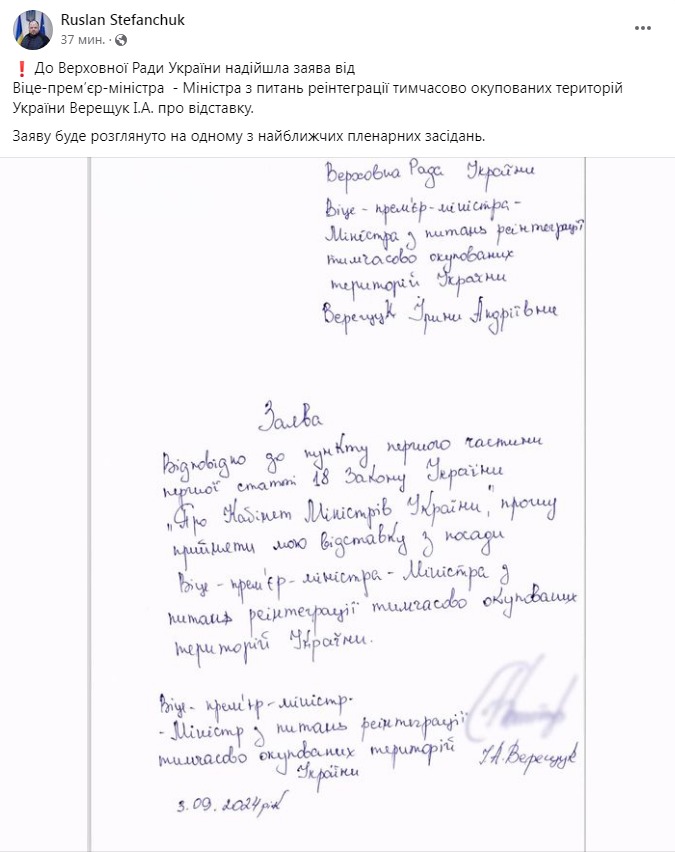 Ruslan Stefanchuk
37 мин. ·
❗ До Верховної Ради України надійшла заява від
Віце-прем’єр-міністра - Міністра з питань реінтеграції тимчасово окупованих територій
України Верещук І.А. про відставку.
Заяву буде розглянуто на одному з найближчих пленарних засідань.
Верховна Рада України
Віце - прем'єр-міністра -
Міністра з питань реінтеграції
тимчасово окупованих
територій України
Верещук Ірини Андріївни
Заява
Відповідно до пункту першого частини
першої статті 18 Закону України
„Про Кабінет Міністрів України", прошу
прийняти мою відставку з посади
Віце - прем'єр-міністра - Міністра з
питань реінтеграції тимчасово окупованих
територій України.
Віце - прем'єр-міністр-
- Міністр з питань реінтеграції
тимчасово окупованих територій
України
І.А. Верещук
3.09.2024 рік